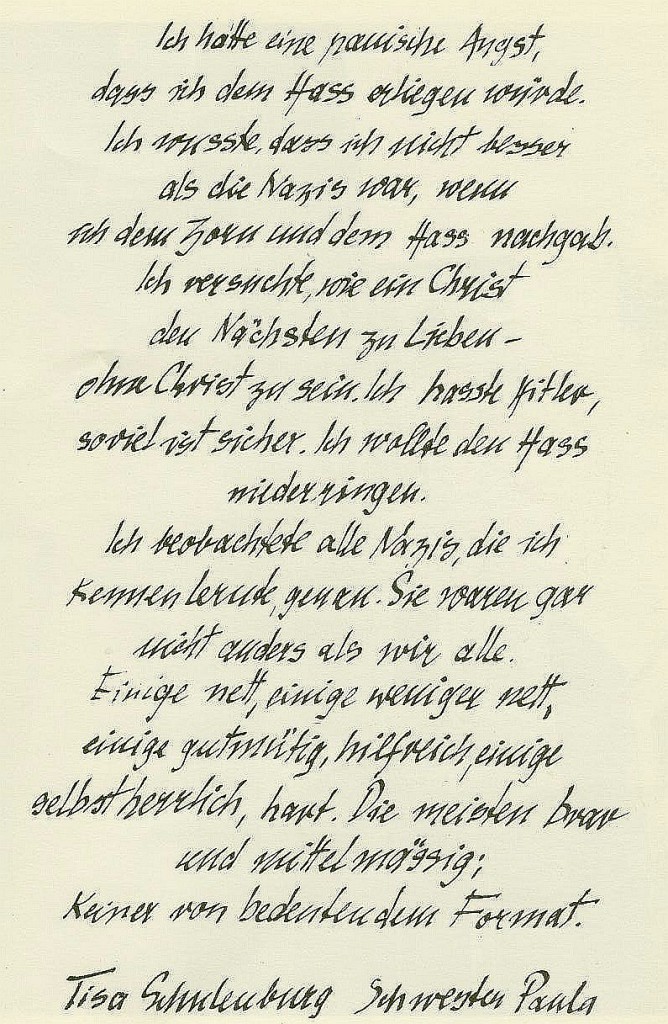 Ich hatte eine panische Angst,
dass ich dem Hass erliegen würde.
Ich wusste, dass ich nicht besser
als die Nazis war, wenn
ich dem Zorn und dem Hass nachgab.
Ich versuchte, wie ein Christ
den Nächsten zu Lieben –
ohne Christ zu sein. Ich hasste Hitler,
soviel ist sicher. Ich wollte den Hass
niederringen.
Ich beobachtete alle Nazis, die ich
kennen lernte, genau. Sie waren gar
nicht anders als wir alle.
Einige nett, einige weniger nett,
einige gutmütig, hilfreich, einige
selbstherrlich, hart. Die meisten brav
und mittelmässig;
Keiner von bedeutendem Format.
Tisa Schulenburg Schwester Paula